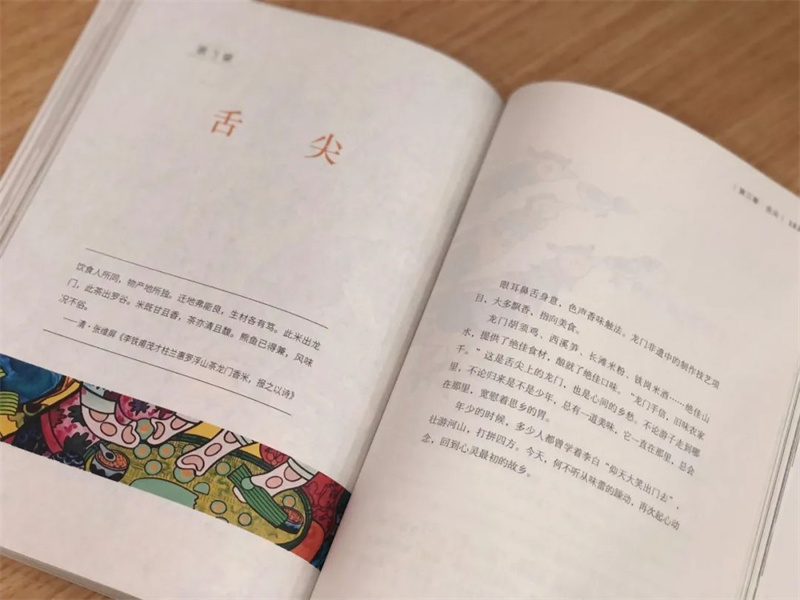 第三章
舌尖
饮食人所同，物产地所独。迁地弗能良，生村各有笃。此米出龙
门，此茶出罗谷。米既甘且香，茶亦清且馥。熊鱼已得兼，风味
况不俗。
——清·张维屏《李铁甫茂才柱兰惠罗浮山茶龙门香米，报之以诗》
（第三章 舌尖）
眼耳鼻舌身意，色声香味触法。龙门非遗中的制作技艺项
目，大多飘香，指向美食。
龙门胡须鸡、西溪笋、长滩米粉、铁岗米酒……绝佳山
水，提供了绝佳食材，酿就了绝佳口味。“龙门手信，旧味农家
干。”这是舌尖上的龙门，也是心间的乡愁。不论游子走到哪
里，不论归来是不是少年，总有一道美味，它一直在那里，总会
在那里，宽慰着思乡的胃。
年少的时候，多少人都曾学着李白“仰天大笑出门去”，
壮游河山，打拼四方。今天，何不听从味蕾的躁动，再次起心动
念，回到心灵最初的故乡。